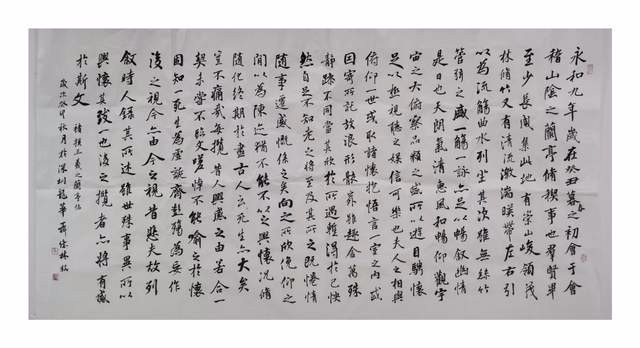 永和九年歲在癸丑暮春之初會于會
稽山陰之蘭亭脩禊事也群賢畢
至少長咸集此地有崇山峻領茂
林脩竹又有清流激湍暎帶左右引
以為流觴曲水列坐其次雖無絲竹
管絃之盛一觴一詠亦足以暢敘幽情
是日也天朗氣清惠風和暢仰觀宇
宙之大俯察品類之盛所以遊目騁懷
足以極視聽之娛信可樂也夫人之相與
俯仰一世或取諸懷抱悟言一室之內或
因寄所託放浪形骸之外雖趣舍萬殊
靜躁不同當其欣於所遇暫得於己快
然自足不知老之將至及其所之既惓情
隨事遷感慨係之矣向之所欣俛仰之
閒以為陳迹猶不能不以之興懷況脩
隨化終期於盡古人云死生亦大矣
豈不痛哉每攬昔人興感之由若合一
契未嘗不臨文嗟悼不能喻之於懷
固知一死生為虛誕齊彭殤為妄作
後之視今亦由今之視昔悲夫故列
敘時人錄其所述雖世殊事異所以
興懷其致一也後之攬者亦將有感
於斯文
王羲之蘭亭序
歲次癸卯秋月於深圳龍華